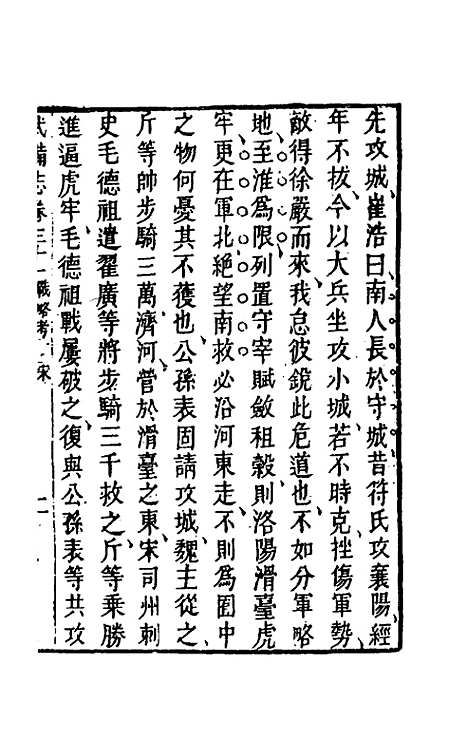 先攻城崔浩曰南人長於守城昔符氏攻襄陽經
年不拔今以大兵坐攻小城若不時克挫傷軍勢
敵得徐嚴而來我怠彼銳此危道也不如分軍略
地至淮為限列置守宰賦斂租穀則洛陽滑臺虎
牢更在軍北絕望南救必沿河東走不則為囿中
之物何憂其不獲也公孫表固請攻城魏主從之
斤等帥步騎三萬濟河營於滑臺之東宋司州刺
史毛德祖遣翟廣等將步騎三千救之斤等乘勝
進逼虎牢毛德祖戰屢破之復與公孫表等共攻
武備志卷三十一戰略考 宋